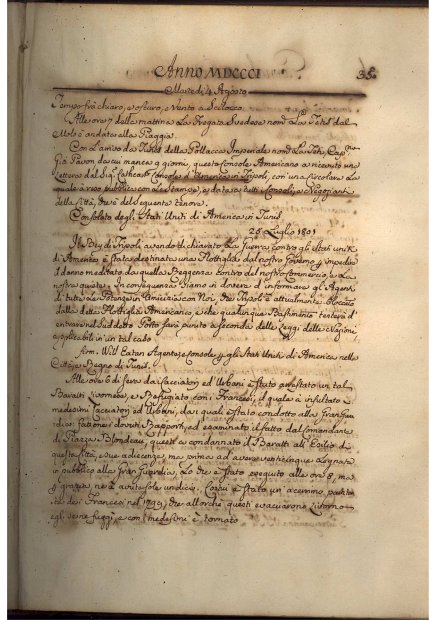 Anno MDCCCI
35.
Martedì 4 Agosto
Tempo frà chiaro, e oscuro, e Vento a Scilocco.
Alle ore 7 della mattina La Fregata Svedese nom.ª La Tetis dal
Molo è andata alla Piaggia.
Con L'arrivo da Tunis della Pollacca Imperiale nom.ª La Teti, Cap.no
Gio Pavon da cui manca 9 giorni, questo Console Americano a ricevuto una
Lettera dal Sig. Cathcart Console d'America in Tripoli, con una Circolare La
quale à reso pubblica con Le Stampe, e data a tutti Consoli, e Negozianti
della Città, che è del seguente tenore.
Consolato degli Stati Uniti di America in Tunis
26 Luglio 1801
Il Bey di Tripoli avendo dichiarato La Guerra contro gli Stati uniti
di America è stata destinata una Flottiglia dal nostro Governo p impedire
il danno meditato da quella Reggenza contro del nostro Commercio, e La
nostra quiete. In conseguenza Siamo in dovere d'informare gli Agenti
di tutte Le Potenze in Amicizia con Noi, che Tripoli è attualmente bloccato
dalla detta Flottiglia Americana, e che qualunque Bastimento tenterà d'
entrare nel Suddetto Porto sarà punito a seconda delle Leggi delle Nazioni
applicabili in un tal caso
firm. Will Eatan Agente, e Console p gli Stati Uniti di America nella
Città, e Regno di Tunis.
Alle ore 6 di sera da Cacciatori ed Urbani è stato arrestato un tal
Baratti Livornese, e Refugiato con i Francesi, il quale à insultato i
medesimi Cacciatori ed Urbani, da i quali è stato condotto alla Gran Gua
rdia: fattone i dovuti Rapporti, ed esaminato il fatto dal Comandante
di Piazza Blondeau, questi a condannato il Baratti all'Esilio di
questa Città, e sue adiacenze, ma prima ad avere venticinque Legnate
in pubblico alla Gran Guardia, Lo che è stato eseguito alle ore 8, ma
p grazia ne à avute sole undici. Costui è stato un acerrimo partita
nte dei Francesi nel 1799, che allorchè questi evacuarono Livorno
egli se ne fuggì, e con i medesimi è tornato